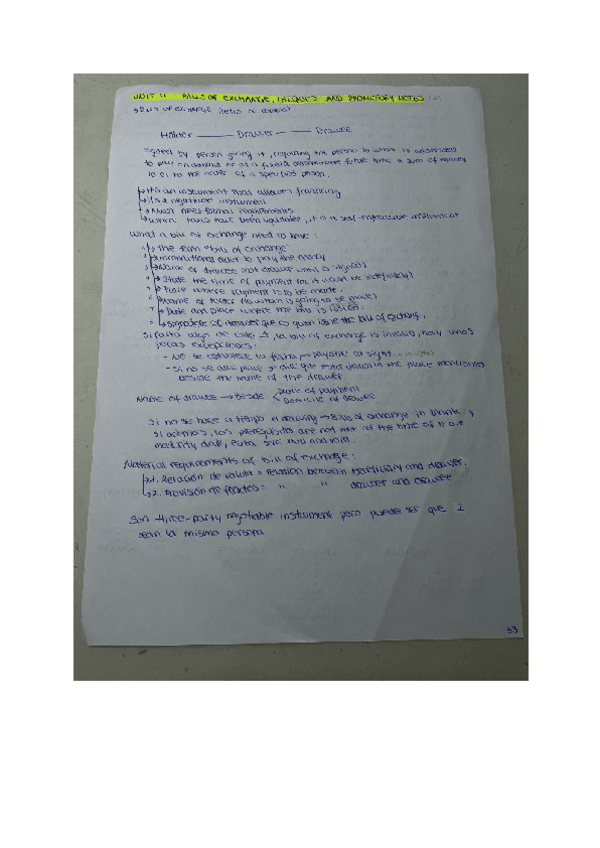 UNIT 11 BILLS OF EXCHANGE, CHEQUES AND PROMISSORY NOTES
BILLS OF EXCHANGE (letra de cambio)
Holder Drawer Drawee
signed by person giving it, requiring the person to whom is addressed
to pay on demand or at a fixed determinable future time a sum of money
to or to the order of a specified person.
It's an instrument that allows financing
It's a negotiable instrument
Must meet formal requirements
it is a self-enforceable instrument
What a bill of exchange need to have:
1 The term "bills of exchange"
2 unconditional order to pay the money
3 Name of drawee
4 State the time of payment
5 Place where payment is to be made.
6 Name of holder (to whom is going to be made)
7 Date and place where the bill is issued.
8 Signature of drawer que es quien issue the bill of exchange.
Si falta algo de esto, la bill of exchange is invalid, hay unas
pocas excepciones:
- No se establece la fecha, payable at sight
- Si no se dice place the place mentioned
beside the name of the drawer.
Name of drawee → Beside Place of payment
Domicile of drawee
Si no se hace a tiempo Bills of exchange in blank y
si además, los prerequisites are not met at the time of
maturity date, esta sera null and void.
Material requirements of bill of exchange:
1. Relación de valuta = relation between beneficiary and drawer.
2. Provisión de fondos = " " drawer and drawee
Son three-party negotiable instrument pero puede ser que 2
sean la misma persona
53